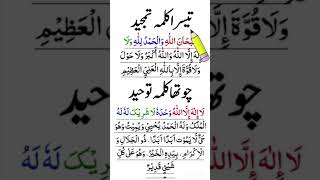 تیسرا کلمہ تمجید
سُبْحَانَ اللّٰهِ وَالْحَمْدُ لِلّٰهِ وَلَا
اِلٰهَ اِلَّا اللّٰهُ وَاللّٰهُ اَكْبَرُ وَلَا حَوْلَ
وَلَا قُوَّةَ اِلَّا بِاللّٰهِ الْعَلِيِّ الْعَظِيْمِ
چوتھا کلمہ توحید
لَا اِلٰهَ اِلَّا اللّٰهُ وَحْدَهٗ لَا شَرِيْكَ لَهٗ لَهُ
الْمُلْكُ وَلَهُ الْحَمْدُ يُحْيِيْ وَيُمِيْتُ وَهُوَ
حَيٌّ لَّا يَمُوْتُ اَبَدًا اَبَدًا ؕ ذُو الْجَلَالِ
وَالْاِكْرَامِ ؕ بِيَدِهِ الْخَيْرُ ؕ وَهُوَ عَلٰى كُلِّ
شَيْءٍ قَدِيْرٌ